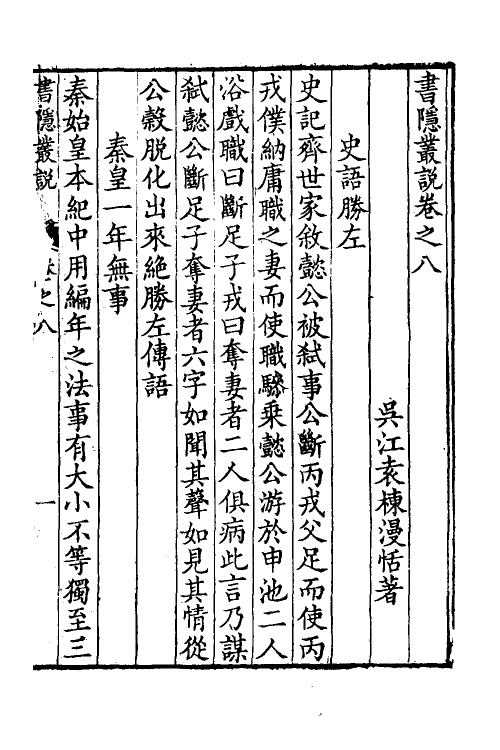 書隱叢説卷之八
吳江袁棟漫恬著
史語勝左
史記齊世家敘懿公被弑事公斷丙戎父足而使丙
戎僕納庸職之妻而使職驂乘懿公游於申池二人
浴戲職曰斷足子戎曰奪妻者二人俱病此言乃謀
弑懿公斷足子奪妻者六字如聞其聲如見其情從
公穀脱化出來絶勝左傳語
秦皇一年無事
秦始皇本紀中用編年之法事有大小不等獨至三
書隱叢説 卷之八 一